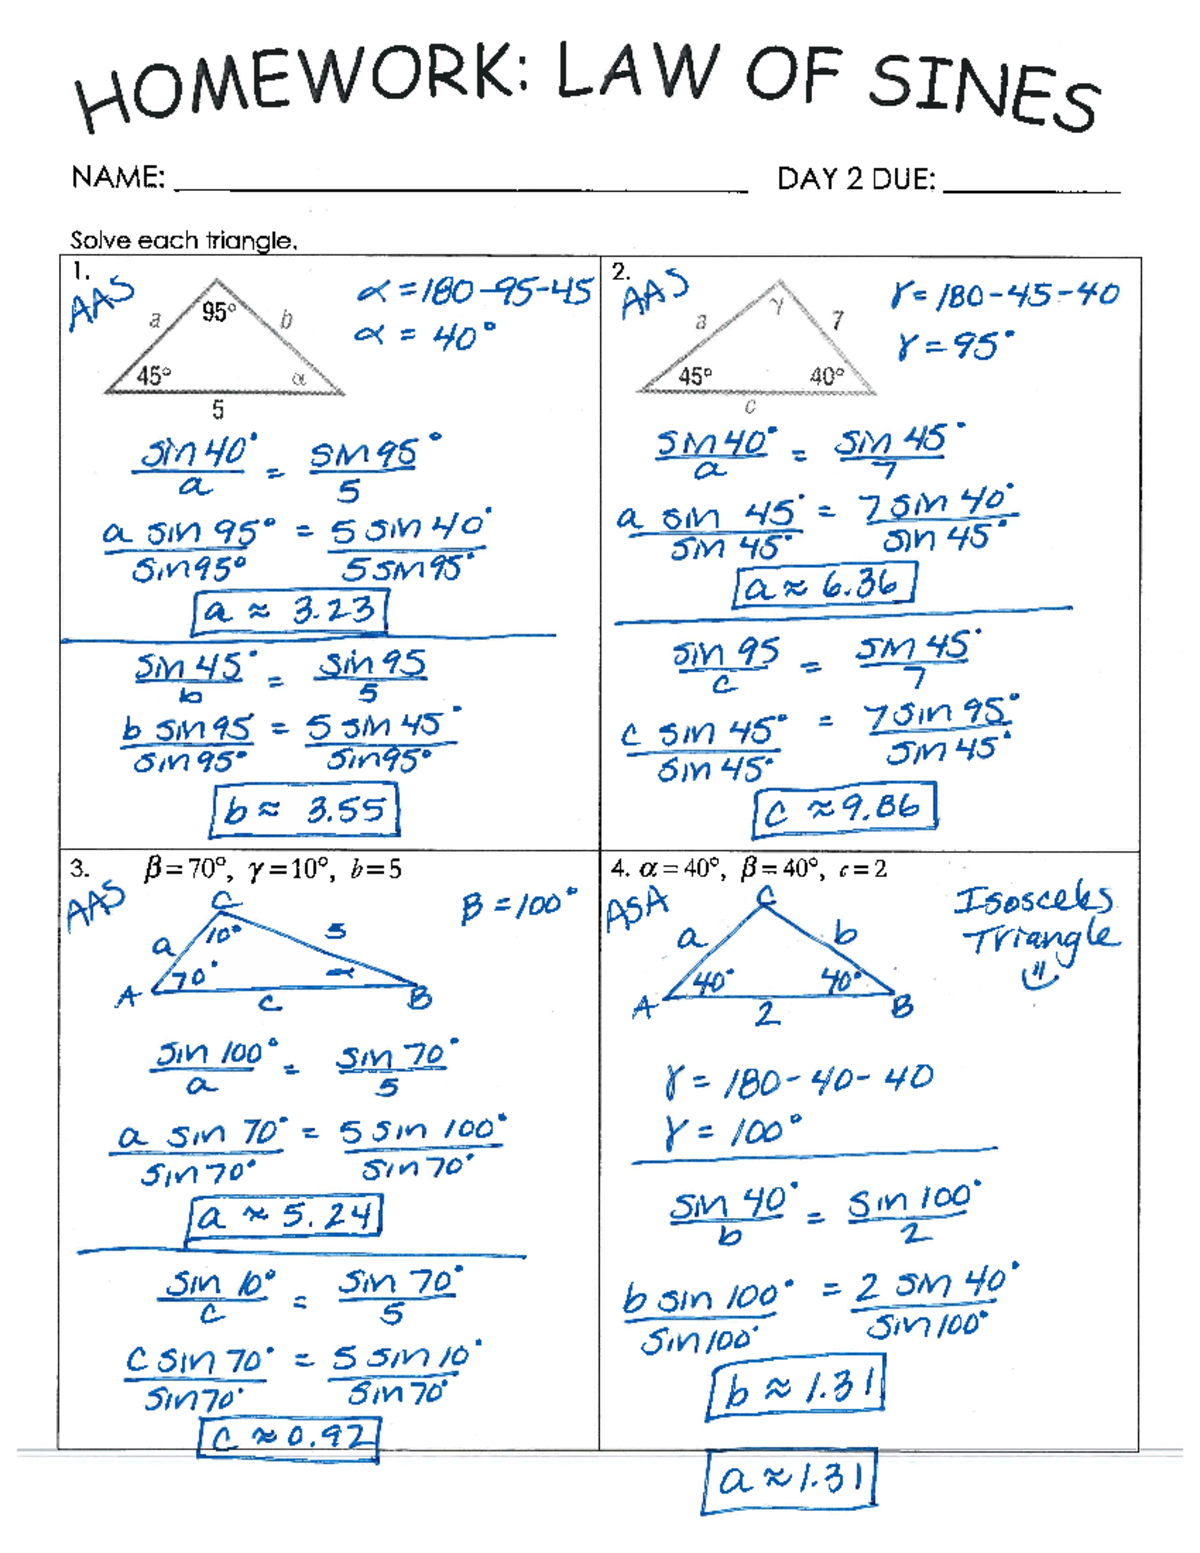 HOMEWORK: LAW OF SINES
NAME: DAY 2 DUE:
Solve each triangle.
1.
AAS
95°
a
b
45°
α
5
α = 180-95-45
α = 40°
sin 40° / a = sin 95° / 5
a sin 95° / sin 95° = 5 sin 40° / 5 sin 95°
a ≈ 3.23
sin 45° / b = sin 95 / 5
b sin 95 / sin 95° = 5 sin 45° / sin 95°
b ≈ 3.55
2.
AAS
γ
a
7
45°
40°
c
γ = 180-45-40
γ = 95°
sin 40° / a = sin 45° / 7
a sin 45° / sin 45° = 7 sin 40° / sin 45°
a ≈ 6.36
sin 95 / c = sin 45° / 7
c sin 45° / sin 45° = 7 sin 95° / sin 45°
c ≈ 9.86
3. β = 70°, γ = 10°, b = 5
AAS
C
10°
5
a
70°
α
A
c
B
B = 100°
sin 100° / a = sin 70° / 5
a sin 70° / sin 70° = 5 sin 100° / sin 70°
a ≈ 5.24
sin 10° / c = sin 70° / 5
c sin 70° / sin 70° = 5 sin 10° / sin 70°
c ≈ 0.92
4. α = 40°, β = 40°, c = 2
ASA
C
a
b
40°
40°
A
B
2
Isosceles
Triangle
γ = 180-40-40
γ = 100°
sin 40° / b = sin 100° / 2
b sin 100° / sin 100° = 2 sin 40° / sin 100°
b ≈ 1.31
a ≈ 1.31